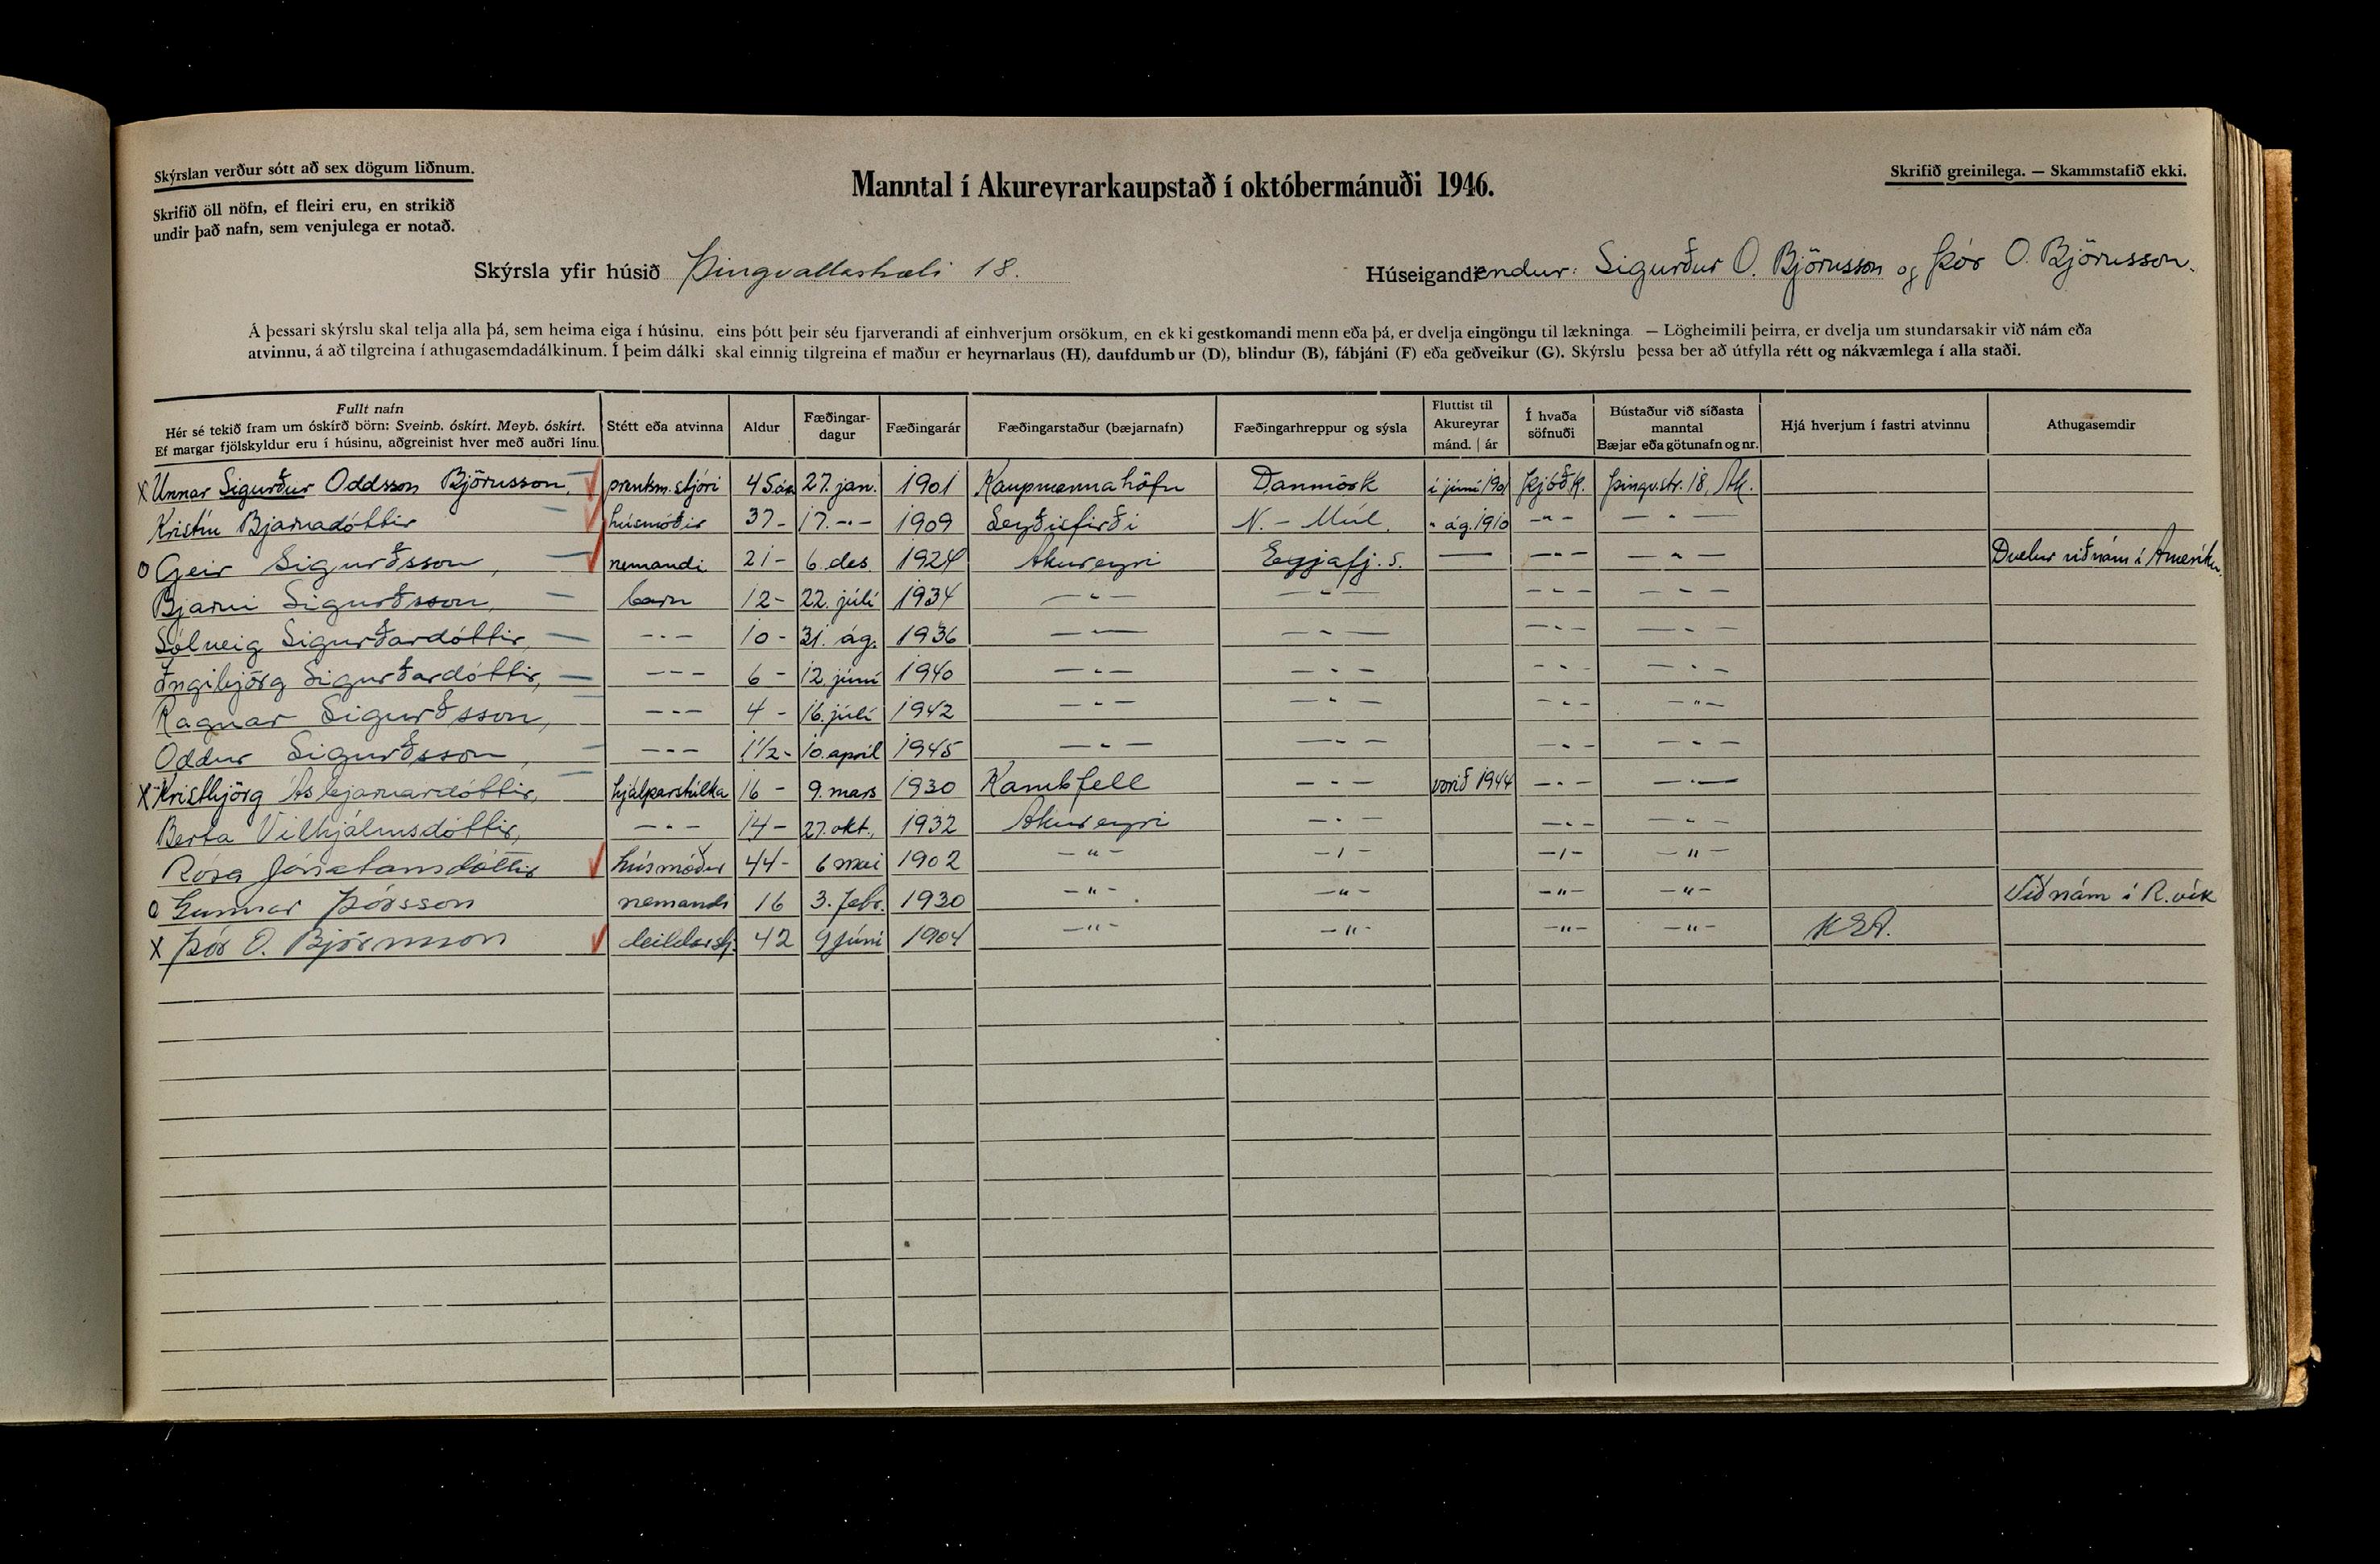 Skýrslan verður sótt að sex dögum liðnum.
Skrifið öll nöfn, ef fleiri eru, en strikið
undir það nafn, sem venjulega er notað.
Manntal í Akureyrarkaupstað í októbermánuði 1946.
Skrifið greinilega. — Skammstafið ekki.
Skýrsla yfir húsið Þingvallastræti 18.
Húseigandiendur: Sigurður O. Björnsson og Þór O. Björnsson.
Á þessari skýrslu skal telja alla þá, sem heima eiga í húsinu, eins þótt þeir séu fjarverandi af einhverjum orsökum, en ekki gestkomandi menn eða þá, er dvelja eingöngu til lækninga. — Lögheimili þeirra, er dvelja um stundarsakir við nám eða
atvinnu, á að tilgreina í athugasemdadálkinum. Í þeim dálki skal einnig tilgreina ef maður er heyrnarlaus (H), daufdumbur (D), blindur (B), fábjáni (F) eða geðveikur (G). Skýrslu þessa ber að útfylla rétt og nákvæmlega í alla staði.
Fullt nafn
Hér sé tekið fram um óskírð börn: Sveinb. óskírt. Meyb. óskírt.
Ef margar fjölskyldur eru í húsinu, aðgreinist hver með auðri línu.
Stétt eða atvinna
Aldur
Fæðingar-
dagur
Fæðingarár
Fæðingarstaður (bæjarnafn)
Fæðingarhreppur og sýsla
Fluttist til
Akureyrar
mánd. | ár
Í hvaða
söfnuði
Bústaður við síðasta
manntal
Bæjar eða götunafn og nr.
Hjá hverjum í fastri atvinnu
Athugasemdir
x Unnar Sigurður Oddsson Björnsson, prentsm.stjóri 45 ára 27. jan. 1901 Kaupmannahöfn Danmörk í júní 1901 Þjóðk. Þingv.str. 18, Ak.
Kristín Bjarnadóttir húsmóðir 37 - 17. -"- 1909 Seyðisfirði N. - Múl. " ág. 1910 -"- -"-
o Geir Sigurðsson, nemandi 21 - 6. des. 1924 Akureyri Eyjafj. s. — -"- -"- Dvelur við nám í Ameríku.
Bjarni Sigurðsson, barn 12 - 22. júlí 1934 -"- -"- -"- -"-
Sólveig Sigurðardóttir, -"- 10 - 31. ág. 1936 -"- -"- -"- -"-
Ingibjörg Sigurðardóttir, -"- 6 - 12. júní 1940 -"- -"- -"- -"-
Ragnar Sigurðsson, -"- 4 - 16. júlí 1942 -"- -"- -"- -"-
Oddur Sigurðsson, -"- 1 1/2 - 10. apríl 1945 -"- -"- -"- -"-
x Kristbjörg Ásbjarnardóttir, hjálparstúlka 16 - 9. mars 1930 Kambfell -"- vorið 1944 -"- -"-
Berta Vilhjálmsdóttir, -"- 14 - 27. okt., 1932 Akureyri -"- -"- -"-
Rósa Jónatansdóttir húsmóður 44 - 6 maí 1902 -"- -"- -"- -"-
o Gunnar Þórsson nemandi 16 3. febr. 1930 -"- -"- -"- -"- Við nám í R.vík
x Þór O. Björnsson deildarstj. 42 9 júní 1904 -"- -"- -"- -"- KEA.